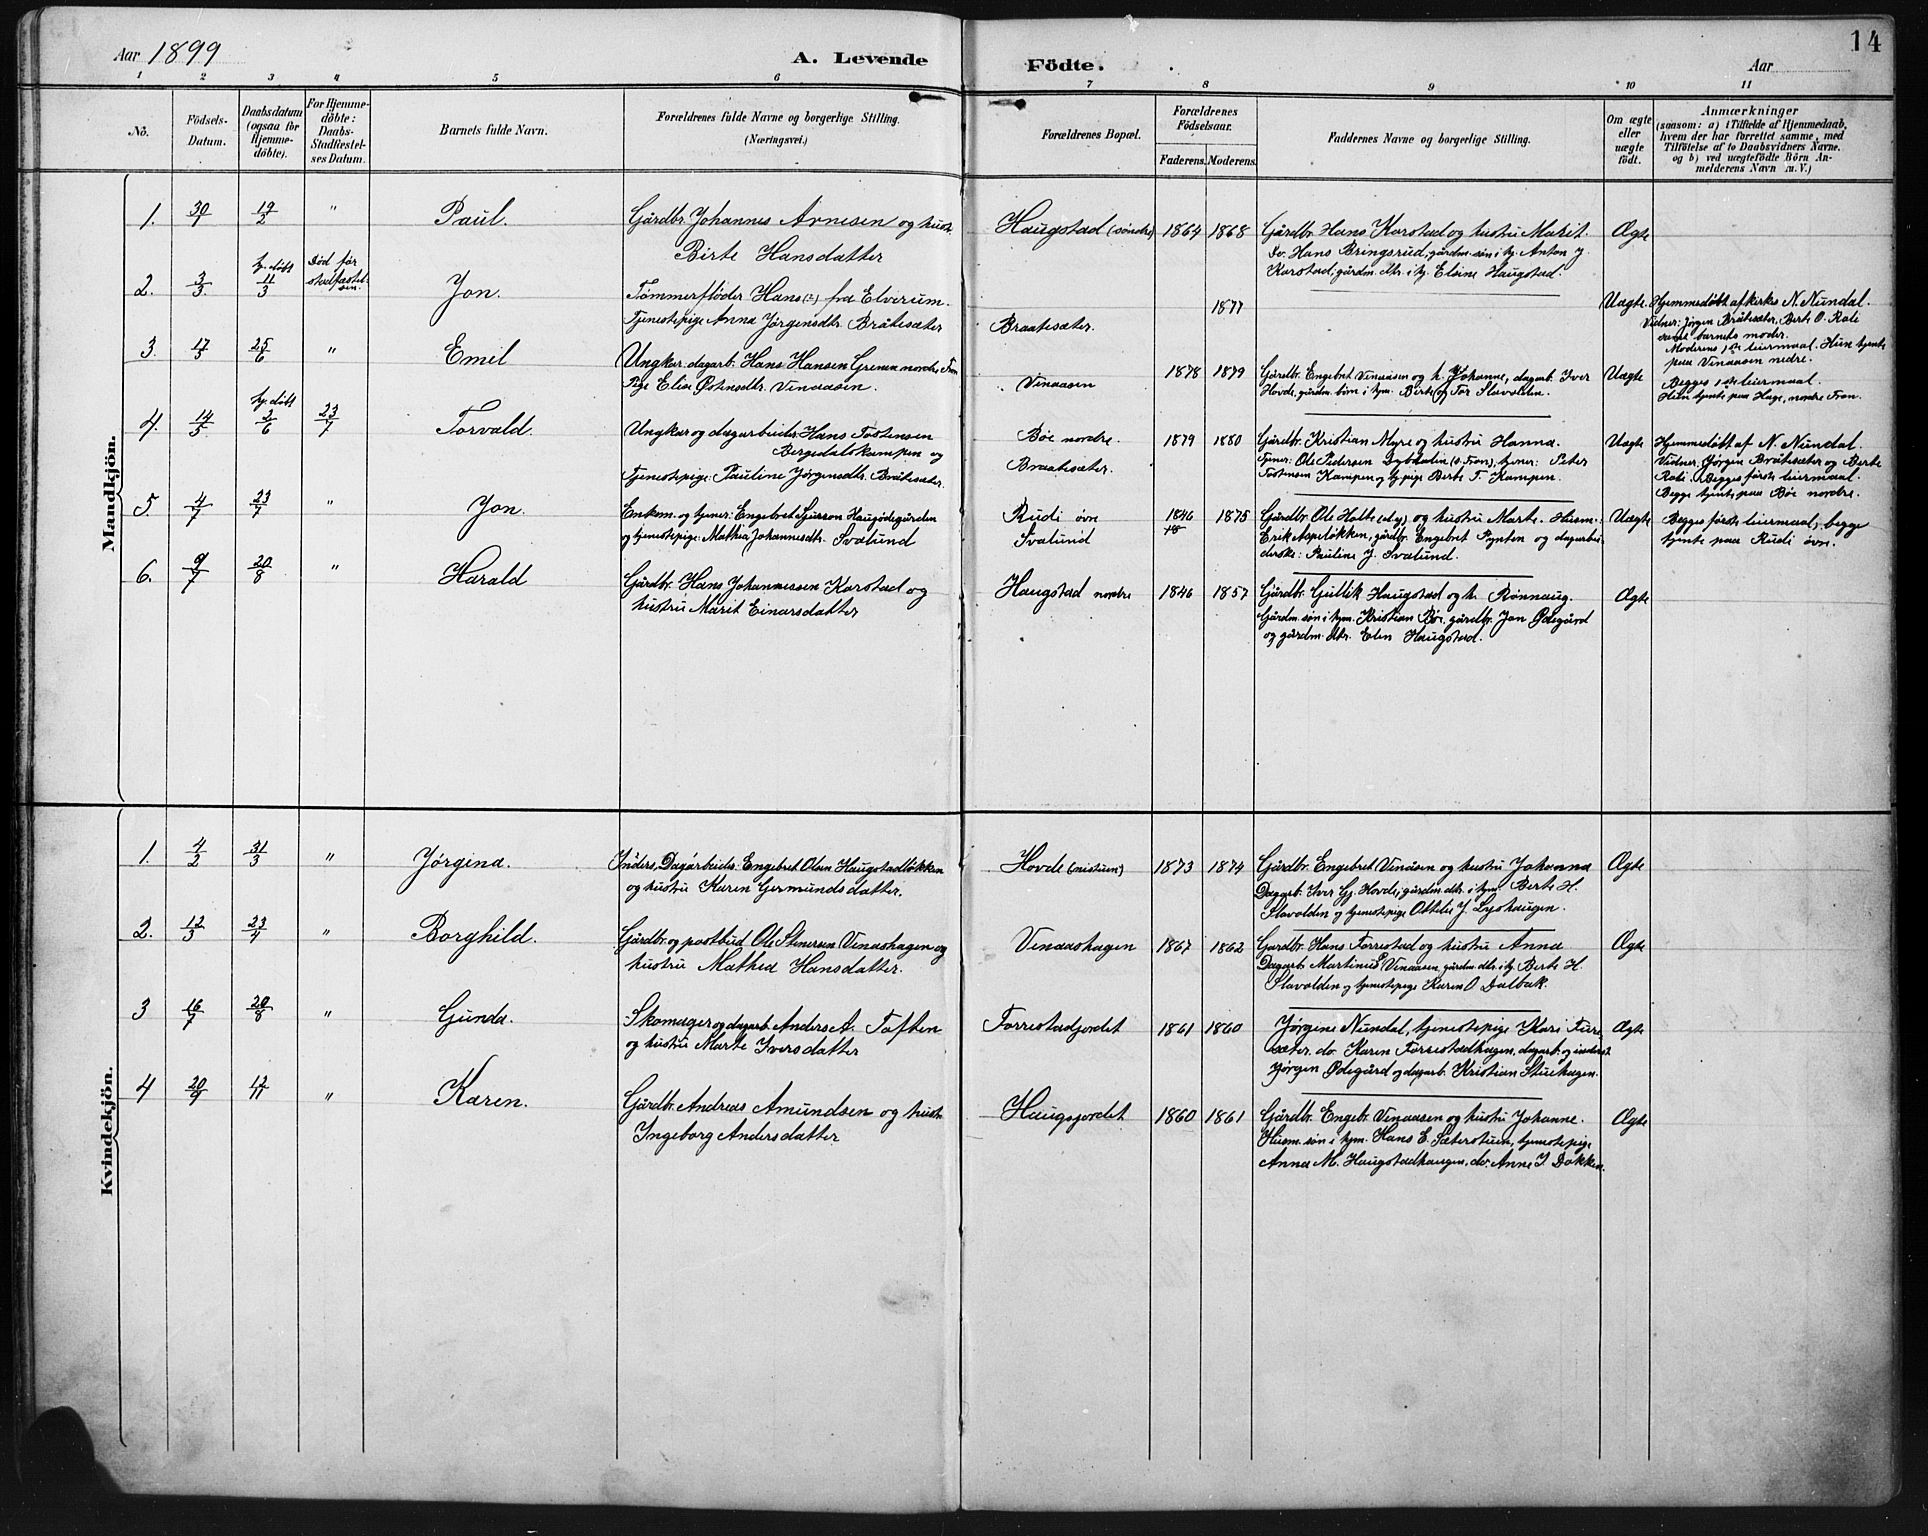 Aar 1899
A. Levende Födte.
Aar
14
1 2 3 4 5 6 7 8 9 10 11
No.
Födsels-Datum.
Daabsdatum (ogsaa för Hjemme-döbte).
For Hjemme-döbte: Daabs-Stadfæstel-ses Datum.
Barnets fulde Navn.
Forældrenes fulde Navne og borgerlige Stilling. (Næringsvei.)
Forældrenes Bopæl.
Forældrenes Födselsaar.
Faderens. Moderens.
Faddernes Navne og borgerlige Stilling.
Om ægte eller uægte födt.
Anmærkninger
(saasom: a) i Tilfælde af Hjemmedaab, hvem der har forrettet samme, med Tilföielse af to Daabsvidners Navne, og b) ved uægtefödte Börn An-melderens Navn m. V.)
Mandkjön.
1. 30/1 19/2 " Paul. Gårdbr. Johannes Arnesen og hust.
Birte Hansdatter
Haugstad (søndre) 1864 1868 Gårdbr. Hans Karstad og hustru Marit.
Do. Hans Bringsrud, gårdm. søn i hj. Anton J.
Karstad, gårdm. dtr. i hj. Eline Haugstad.
Ægte
2. 3/3 hj. døbt 11/3 Død før stadfæstel-sen. Jon. Tømmerfløder Hans (?) fra Elverum.
Tjenestepige Anna Jørgensdtr. Bråtesæter
Braatesæter. 1877 Uægte. Hjemmedøbt af kirkes. N. Nundal.
Vidner: Jørgen Bråtesæter, Berte O. Rodi
barnets moder.
Moderens 1ste leiermaal. Hun tjente
paa Vinaasen nedre.
3. 17/5 25/6 " Emil Ungkar dagarb. Hans Hansen nordre Fron
Pige Elise Vinaasen.
Vinaasen 1878 1879 Gårdbr. Engebret Vinaasen og h. Johanne, dagarb. Iver
Hovde, gårdm. børn i hjm. Berte og Tor Slavolden.
Uægte Begges 1ste leiermaal.
Hun tjente paa Hage, nordre Fron.
4. 14/5 hj. døbt 2/6 23/7 Torvald. Ungkar og dagarbeider Hans Tostensen
Bergedalskampen og
Tjenestepige: Pauline Jørgensdtr. Bråtesæter.
Bøe nordre.
Braatesæter.
1879 1880 Gårdbr. Kristian Myre og hustru Hanna.
Tjener: Ole Pedersen (s. Fron), tjener: Peter
Tostensen Kampen og tj. pige Berte T. Kampen.
Uægte Hjemmedøbt af N. Nundal.
Vidner: Jørgen Bråtesæter og Berte
Rodi. Begges første leiermaal.
Begge tjente paa Bøe nordre.
5. 4/7 23/7 " Jon. Enkem. og tjener: Engebret Haugødegården
og tjenestepige: Mathea Johannesdtr. Svalund
Rudi øvre
Svalund
1846 1875 Gårdbr. Ole Holte og hustru Marte. Husm.
Erik Aspeløkken, gårdbr. Engebret Pynten og dagarbei-
derske: Pauline J. Svalund.
Uægte Begges første leiermaal, begge
tjente paa Rudi øvre.
6. 9/7 20/8 " Harald Gårdbr. Hans Johannessen Karstad og
hustru Marit Einarsdatter
Haugstad nordre 1846 1857 Gårdbr. Gullik Haugstad og h. Rønnaug.
Gårdm. søn i hjm. Kristian Bøe, gårdbr. Jon Ødegård
og gårdm. dtr. Elen Haugstad.
Ægte
Kvindekjön.
1. 4/2 31/3 " Jørgina. Inders, Dagarbeider: Engebret Olsen Haugstadløkken
og hustru Karen Germundsdatter.
Hovde (nistuen) 1873 1874 Gårdbr. Engebret Vinåsen og hustru Johanna
Dagarb. Iver Gj. Hovde, gårdm. dtr. i hjm. Berte H.
Slavolden og tjenestepige Ottilie J. Lyshaugen.
Ægte
2. 12/3 23/4 " Borghild. Gårdbr. og postbud Ole Stenersen Vinaashagen og
hustru Mathea Hansdatter.
Vinaashagen 1867 1862 Gårdbr. Hans Forrestad og hustru Anna
Dagarb. Martinus Vinaasen, gårdm. dtr. i hj. Berte H.
Slavolden og tjenestepige Karen O. Dalbak.
Ægte
3 16/7 20/8 " Gunda. Skomager og dagarb. Anders A. Toften
og hustru Marte Iversdatter
Forrestadjordet 1861 1860 Jørgine Nundal, tjenestepige Kari Fure
sæter. do. Karen Forrestadhagen, dagarb. og inderst
Jørgen Ødegård og dagarb. Kristian Stuehagen.
Ægte
4 20/9 12/11 " Karen. Gårdbr. Andreas Amundsen og hust.
Ingeborg Andersdatter
Haugsjordet 1860 1861 Gårdbr. Engebr. Vinaasen og hustru Johanne.
Husm. søn i hjm. Hans E. Sæterstuen, tjenestepige
Anna M. Haugstadhaugen, do. Anne I. Dokken.
Ægte